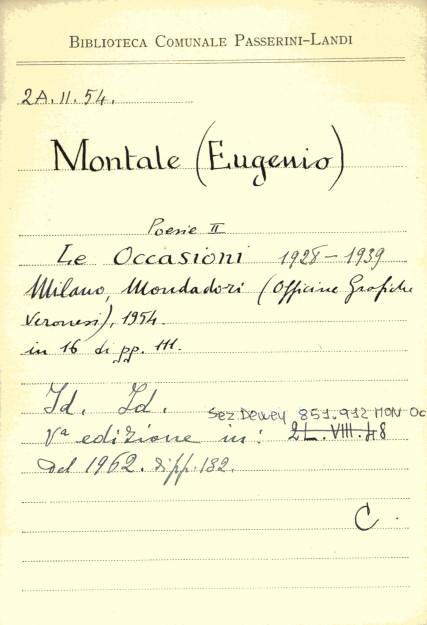 BIBLIOTECA COMUNALE PASSERINI-LANDI
2A.II.54.
Montale (Eugenio)
Poesie II
Le Occasioni 1928-1939
Milano, Mondadori (Officine Grafiche
Veronesi), 1954.
in 16 di pp. 111.
Id. Id. Sez Dewey 851.912 MON Oc
Vª edizione in: 2L.VIII.48
del 1962. di pp. 182.
C.